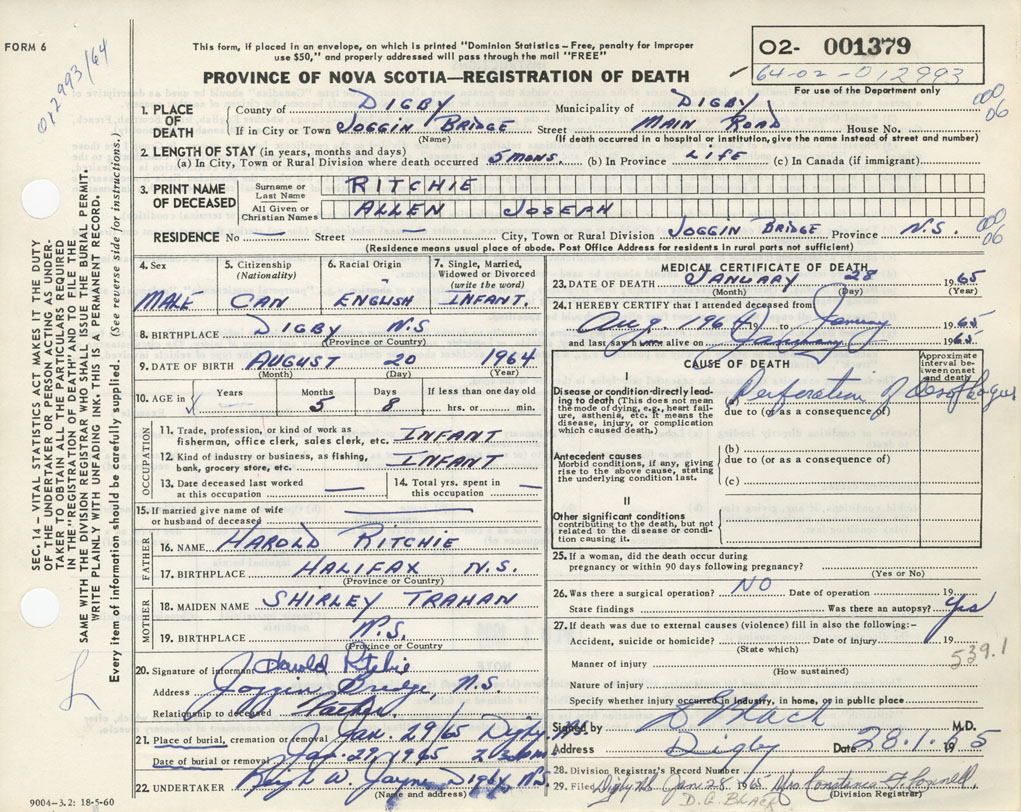 FORM 6
012993/64
This form, if placed in an envelope, on which is printed "Dominion Statistics – Free, penalty for improper
use $50," and properly addressed will pass through the mail "FREE"
PROVINCE OF NOVA SCOTIA—REGISTRATION OF DEATH
02- 001379
64-02-012993
For use of the Department only
1. PLACE OF DEATH
County of DIGBY Municipality of DIGBY
If in City or Town JOGGIN BRIDGE Street MAIN ROAD House No.
(Name) (If death occurred in a hospital or institution, give the name instead of street and number)
000
06
2. LENGTH OF STAY (in years, months and days)
(a) In City, Town or Rural Division where death occurred 5 MONS. (b) In Province LIFE (c) In Canada (if immigrant)
3. PRINT NAME OF DECEASED
Surname or Last Name RITCHIE
All Given or Christian Names ALLEN JOSEPH
RESIDENCE No — Street — City, Town or Rural Division JOGGIN BRIDGE Province N.S.
(Residence means usual place of abode. Post Office Address for residents in rural parts not sufficient)
000
06
4. Sex
MALE
5. Citizenship (Nationality)
CAN
6. Racial Origin
ENGLISH
7. Single, Married, Widowed or Divorced (write the word)
INFANT.
8. BIRTHPLACE DIGBY N.S
(Province or Country)
9. DATE OF BIRTH AUGUST 20 1964
(Month) (Day) (Year)
10. AGE in Years — Months 5 Days 8 If less than one day old hrs. or min.
OCCUPATION
11. Trade, profession, or kind of work as
fisherman, office clerk, sales clerk, etc. INFANT
12. Kind of industry or business, as fishing,
bank, grocery store, etc. INFANT
13. Date deceased last worked
at this occupation —
14. Total yrs. spent in
this occupation —
15. If married give name of wife
or husband of deceased —
FATHER
16. NAME HAROLD RITCHIE
17. BIRTHPLACE HALIFAX N.S.
(Province or Country)
MOTHER
18. MAIDEN NAME SHIRLEY TRAHAN
19. BIRTHPLACE N.S.
(Province or Country)
20. Signature of informant Harold Ritchie
Address Joggin Bridge, N.S.
Relationship to deceased Father.
21. Place of burial, cremation or removal Jan. 29/65 Digby, NS
Date of burial or removal Jan. 29, 1965
22. UNDERTAKER Digby NS
(Name and address)
MEDICAL CERTIFICATE OF DEATH
23. DATE OF DEATH JANUARY 28 1965
(Month) (Day) (Year)
24. I HEREBY CERTIFY that I attended deceased from
Aug. 1964 19 to January 1965
and last saw him alive on January 1965
CAUSE OF DEATH
Approximate interval between onset and death
I
Disease or condition directly leading to death (This does not mean the mode of dying, e.g., heart failure, asthenia, etc. It means the disease, injury, or complication which caused death.)
(a) Perforation of Oesophagus
due to (or as a consequence of)
Antecedent causes
Morbid conditions, if any, giving rise to the above cause, stating the underlying condition last.
(b)
due to (or as a consequence of)
(c)
II
Other significant conditions
contributing to the death, but not related to the disease or condition causing it.
25. If a woman, did the death occur during
pregnancy or within 90 days following pregnancy?
(Yes or No)
26. Was there a surgical operation? NO Date of operation 19
State findings Was there an autopsy? Yes
27. If death was due to external causes (violence) fill in also the following:-
Accident, suicide or homicide? Date of injury 19
(State which)
539.1
Manner of injury
(How sustained)
Nature of injury
Specify whether injury occurred in industry, in home, or in public place
Signed by D Black M.D.
Address Digby Date 28.1.1965
28. Division Registrar's Record Number
29. Filed Digby NS Jan 28 1965 Mrs. Constance
(Division Registrar)
D.G. BLACK
SEC. 14 – VITAL STATISTICS ACT MAKES IT THE DUTY
OF THE UNDERTAKER OR PERSON ACTING AS UNDER-
TAKER TO OBTAIN ALL THE PARTICULARS REQUIRED
IN THE "REGISTRATION OF DEATH" AND TO FILE THE
SAME WITH THE DIVISION REGISTRAR WHO SHALL ISSUE THE BURIAL PERMIT.
WRITE PLAINLY WITH UNFADING INK. THIS IS A PERMANENT RECORD.
Every item of information should be carefully supplied. (See reverse side for instructions.)
9004–3.2: 18-5-60